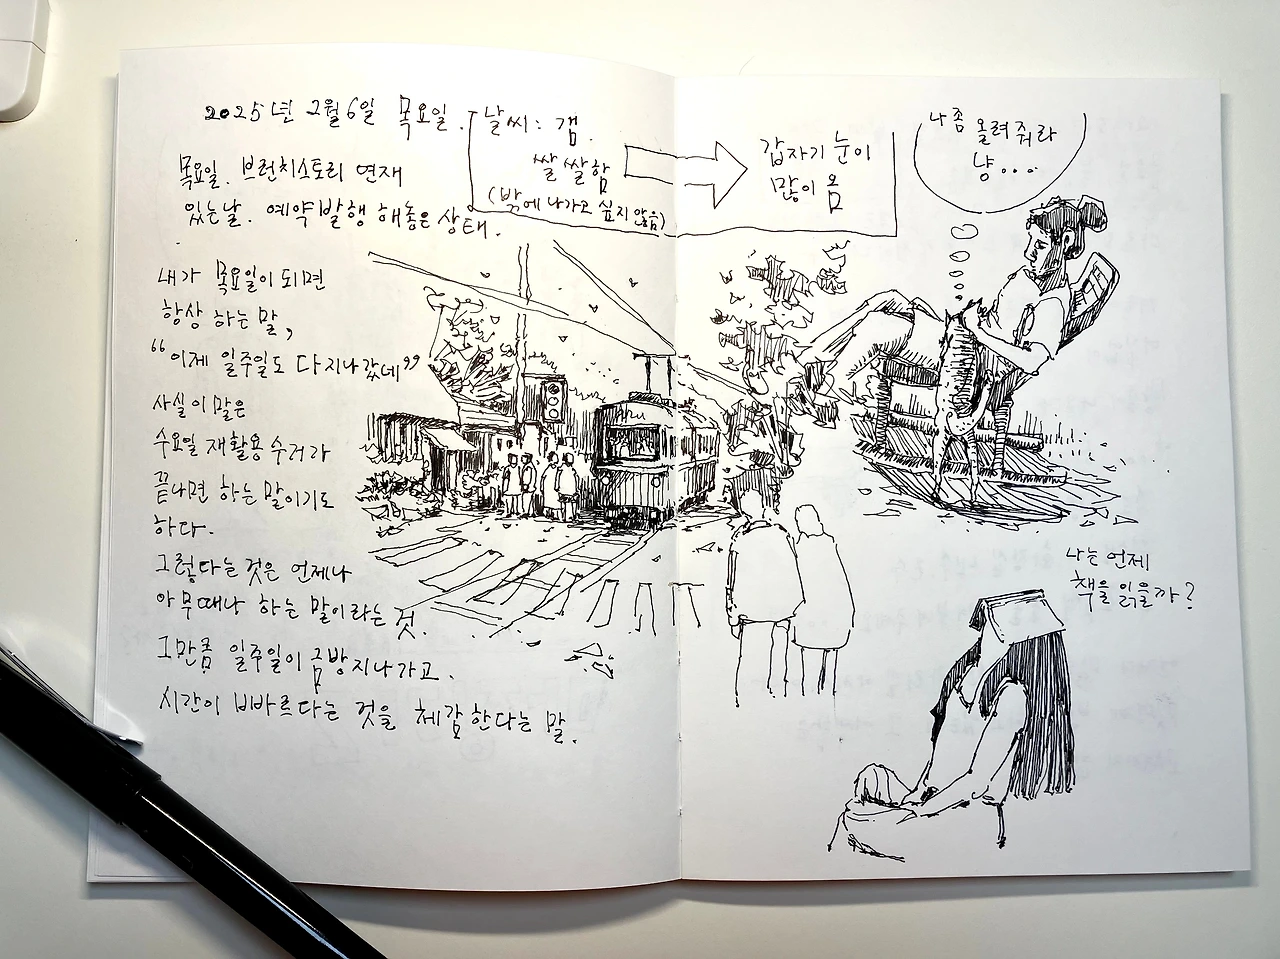 2025년 2월 6일 목요일.
날씨: 갬.
쌀쌀함
(밖에 나가고 싶지 않음)
갑자기 눈이
많이 옴
목요일. 브런치스토리 연재
있는날. 예약발행 해놓은 상태.
내가 목요일이 되면
항상 하는 말,
“이제 일주일도 다 지나갔네”
사실 이 말은
수요일 재활용 수거가
끝나면 하는 말이기도
하다.
그렇다는 것은 언제나
아무때나 하는 말이라는 것.
그만큼 일주일이 금방지나가고.
시간이 빠르다는 것을 체감한다는 말.
나 좀 올려줘라
냥...
나는 언제
책을 읽을까?